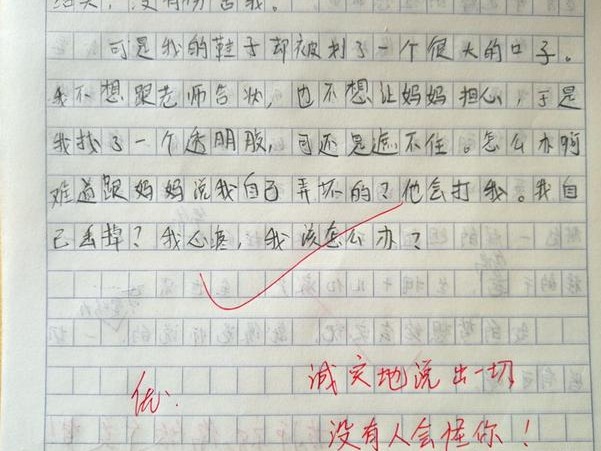 可是我的鞋子却被划了一个很大的口子。
我不想跟老师告状，也不想让妈妈担心，于是
我找了一个透明胶，可还是遮不住。怎么办啊
难道跟妈妈说我自己弄坏的？他会打我。我自
己丢掉？我心疼，我该怎么办？
优.
诚实地说出一切
没有人会怪你！